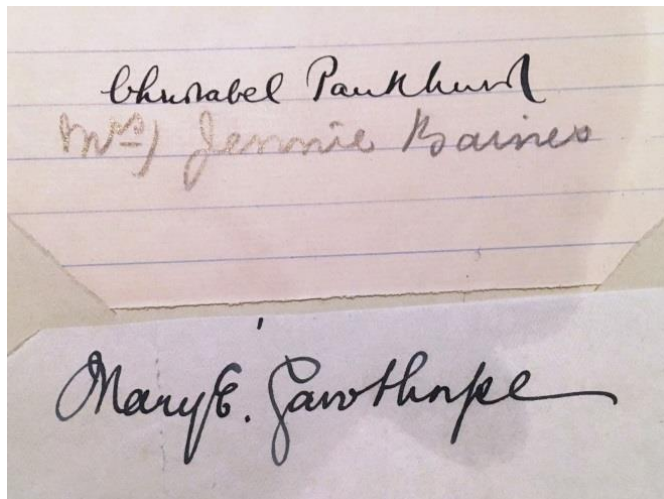 Christabel Pankhurst
(Mrs) Jennie Baines
Mary E. Gawthorpe